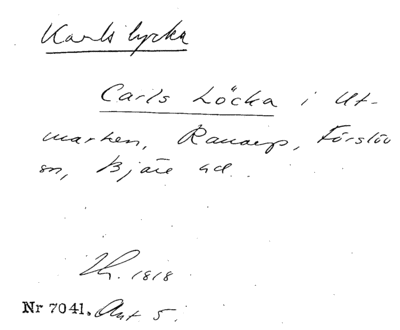 Karls lycka
Carls Löcka i Ut-
marken, Ranarp, Förslöv
sn, Bjäre hd.
1818
Nr 7041. Akt 5.